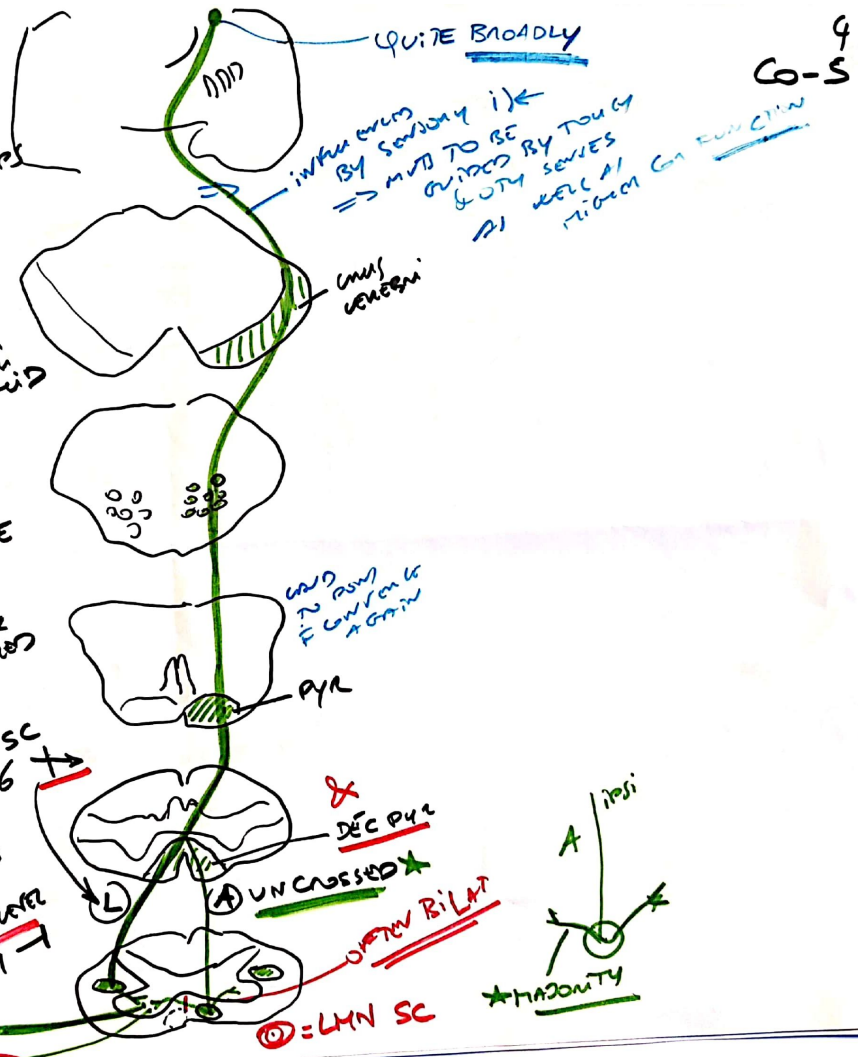 4
Co-S
QUITE BROADLY
INFLUENCED
BY SENSORY i) ←
⇒ MVT TO BE
GUIDED BY TOUCH
& OTH SENSES
AS WELL AS
HIGHER COR FUNCTION
CRUS
CEREBRI
TO PONS
CONVERGE
AGAIN
PYR
SC
6
&
DEC PYR
L
A UNCROSSED ★
LEVEL
OFTEN BILAT
= LMN SC
A
ipsi
★ MAJORITY